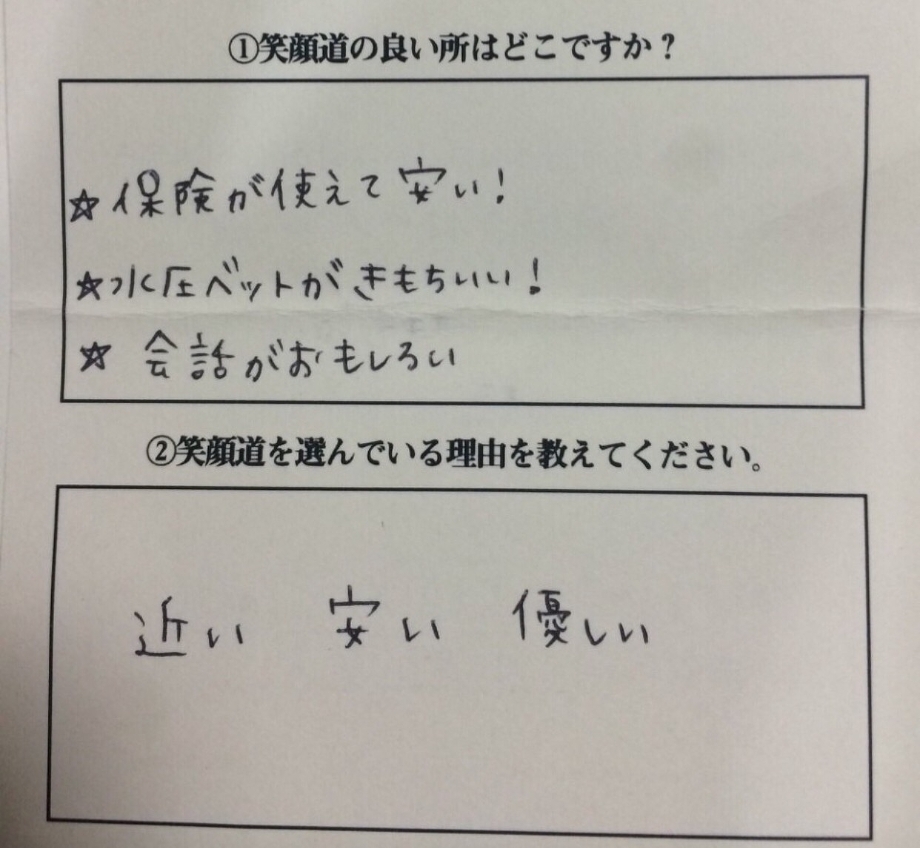 ①笑顔道の良い所はどこですか？
☆保険が使えて安い！
☆水圧ベットがきもちいい！
☆会話がおもしろい
②笑顔道を選んでいる理由を教えてください。
近い 安い 優しい